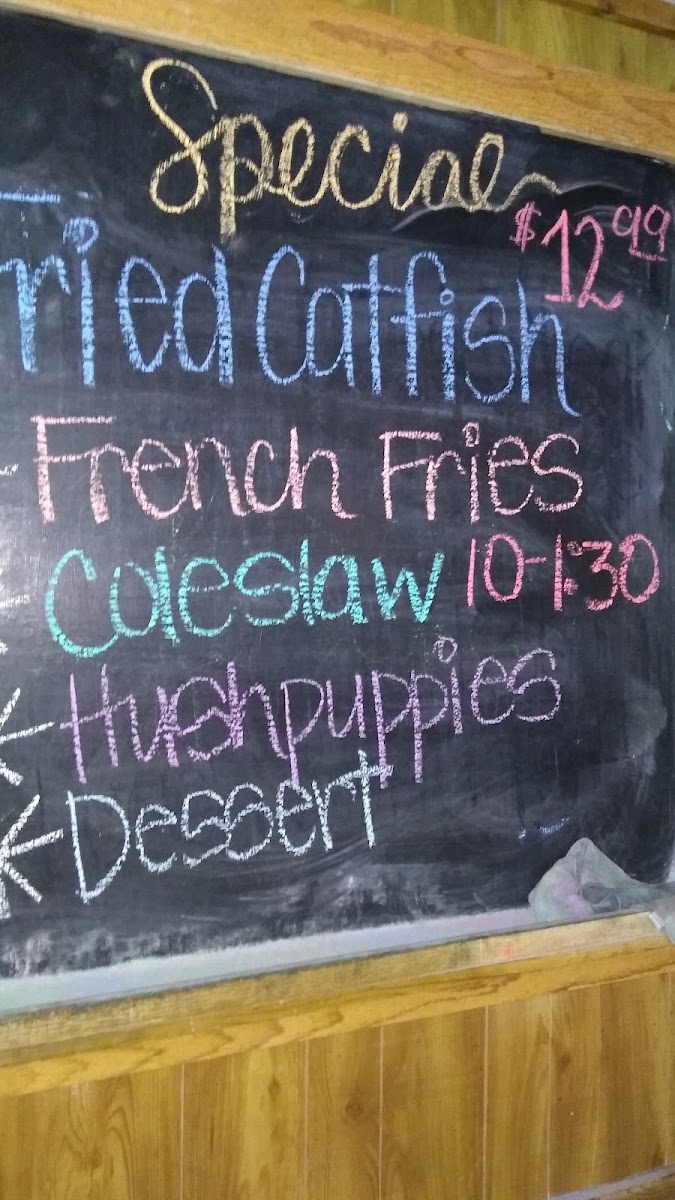 Special
$12.99
Fried Catfish
French Fries
Coleslaw 10-1:30
Hushpuppies
Dessert